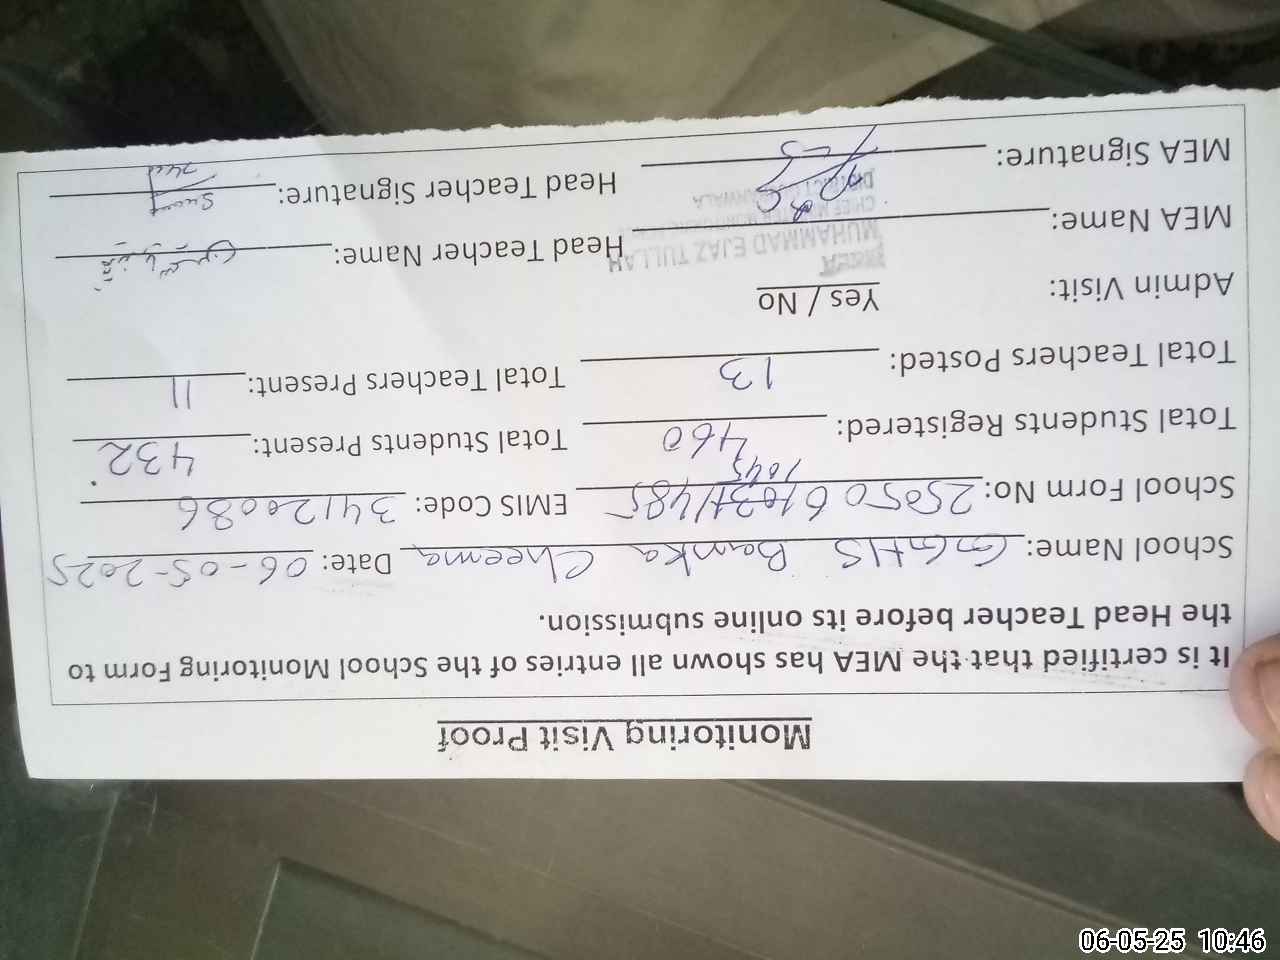 Monitoring Visit Proof
It is certified that the MEA has shown all entries of the School Monitoring Form to
the Head Teacher before its online submission.
School Name: GGHS Bamka Cheema Date: 06-05-2025
School Form No: EMIS Code: 34120086
1045
Total Students Registered: 460 Total Students Present: 432
Total Teachers Posted: 13 Total Teachers Present: 11
Admin Visit: Yes / No
MUHAMMAD EJAZ TULLAH
MEA Name: Head Teacher Name:
MEA Signature: Head Teacher Signature:
06-05-25 10:46